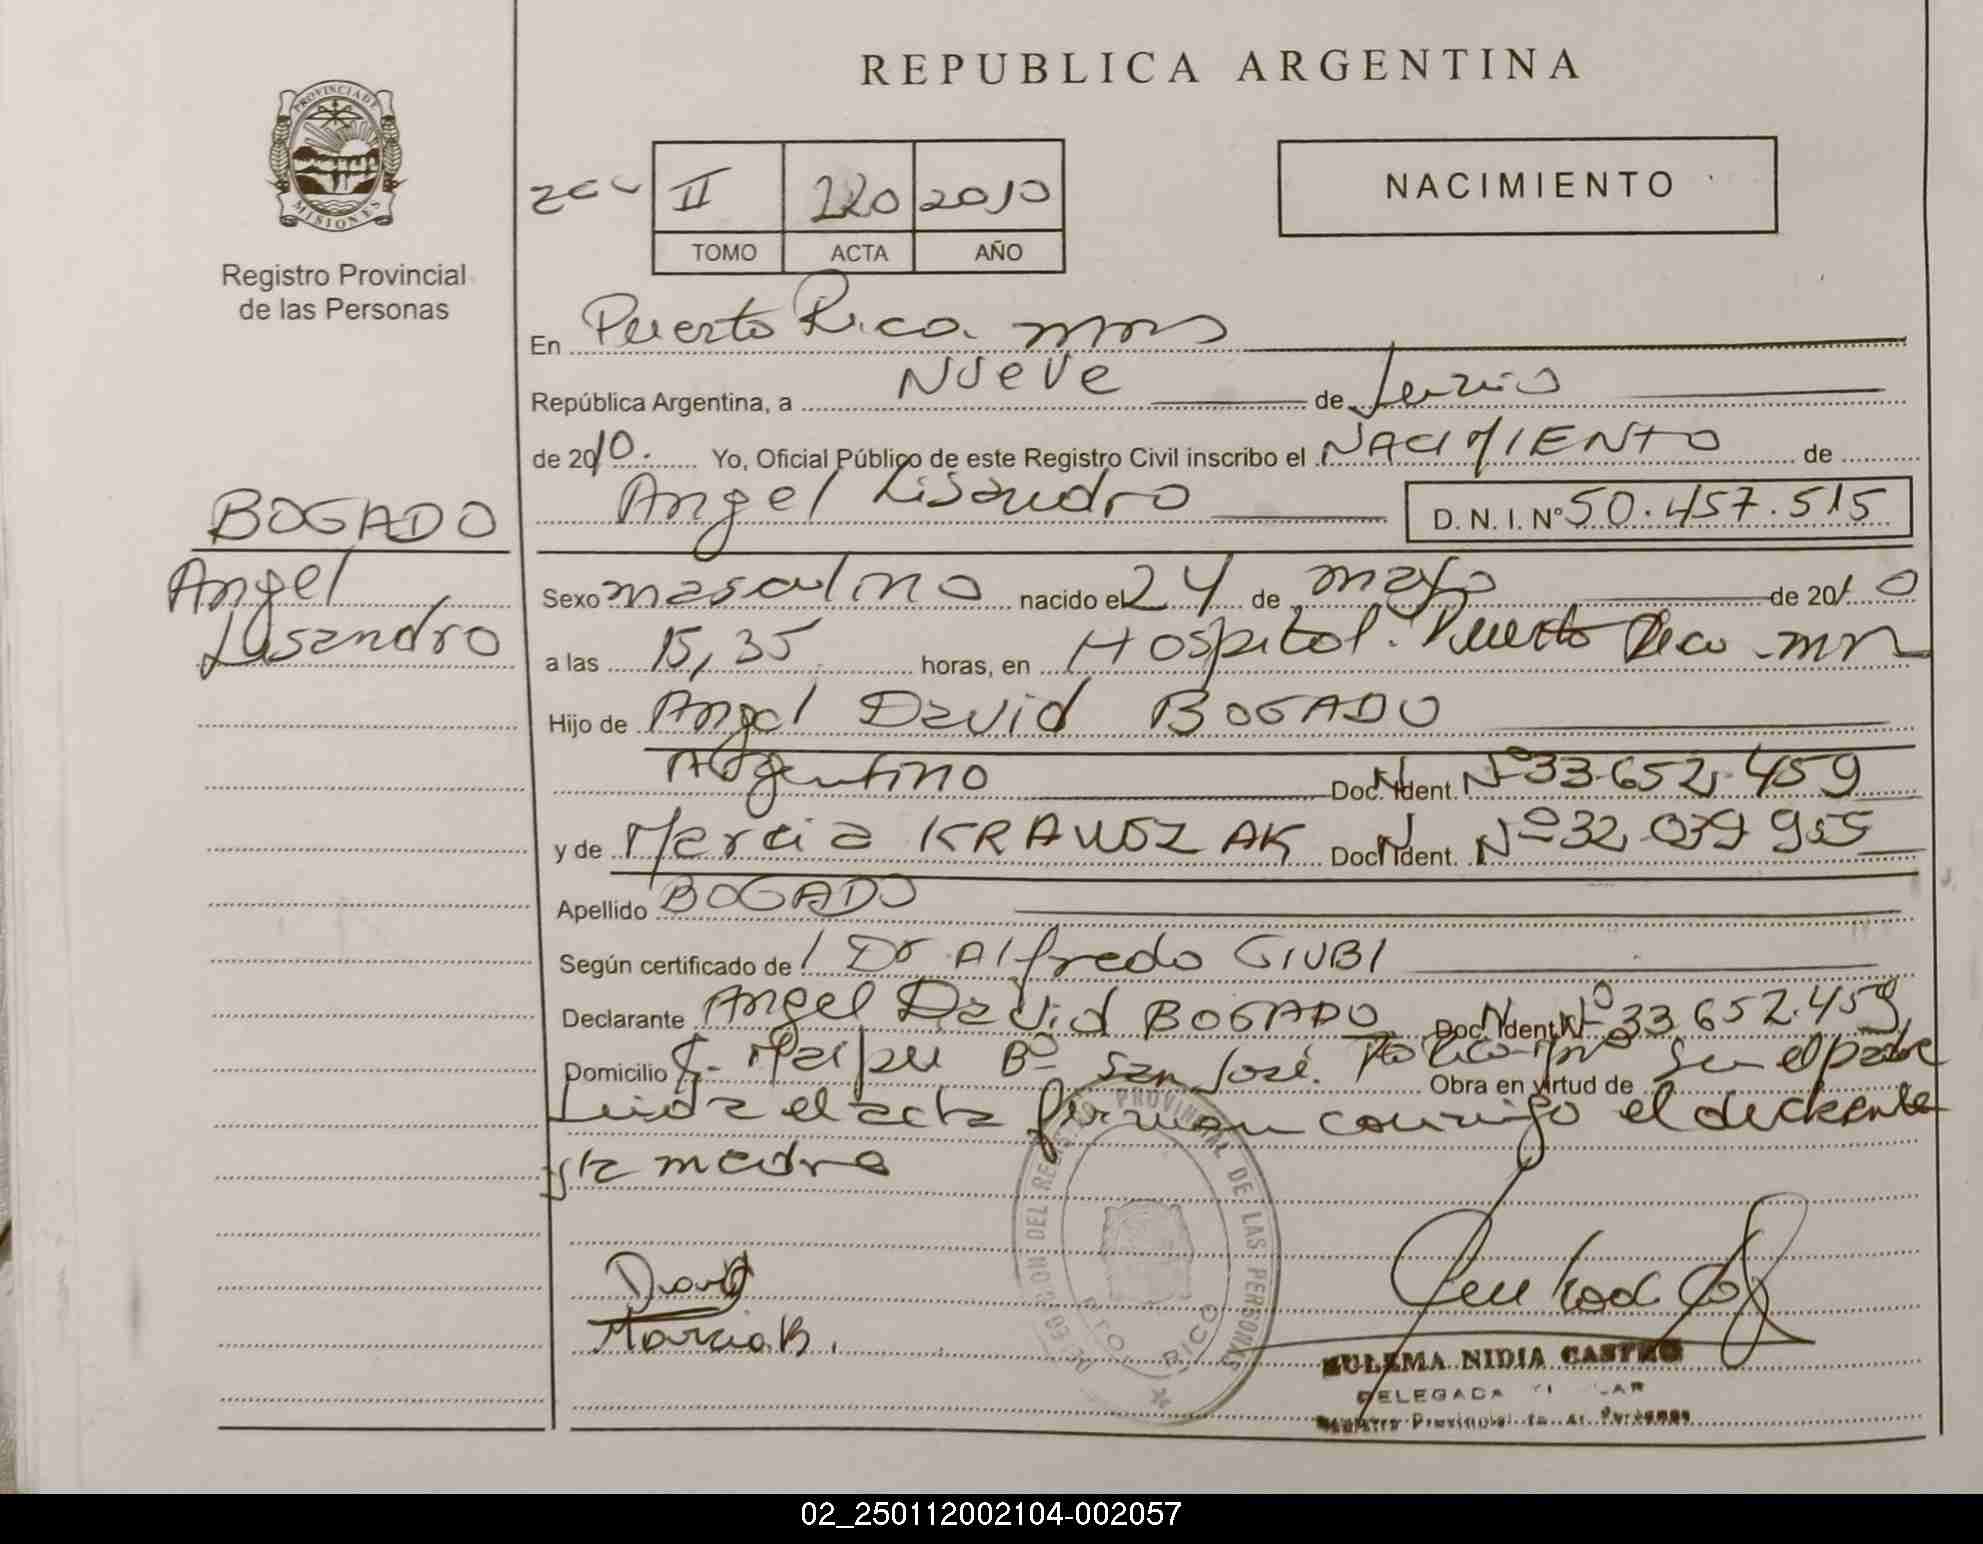 REPUBLICA ARGENTINA
PROVINCIA DE
MISIONES
Registro Provincial
de las Personas
II 220 2010
TOMO ACTA AÑO
NACIMIENTO
En Puerto Rico. mns
República Argentina, a Nueve de Junio
de 2010. Yo, Oficial Público de este Registro Civil inscribo el NACIMIENTO de
Angel Lisandro D. N. I. Nº 50.457.515
BOGADO
Angel
Lisandro
Sexo masculino nacido el 24 de mayo de 2010
a las 15,35 horas, en Hospital. Puerto Rico - mn
Hijo de Angel David BOGADO
Argentino Doc. N Ident. Nº 33.652.459
y de Marcia KRAWSZAK Doc N Ident. Nº 32.039.955
Apellido BOGADO
Según certificado de / Dr Alfredo GIUBI
Declarante Angel David BOGADO Doc N Ident. Nº 33.652.459
Domicilio Maipu Bº San José. Obra en virtud de ser el padre
Leida el acta firman conmigo el declarante
y la madre
David
Marcia B.
REGISTRO PROVINCIAL DE LAS PERSONAS
PTO. RICO
ZULEMA NIDIA CASTRO
DELEGADA
Registro Provincial
02_250112002104-002057